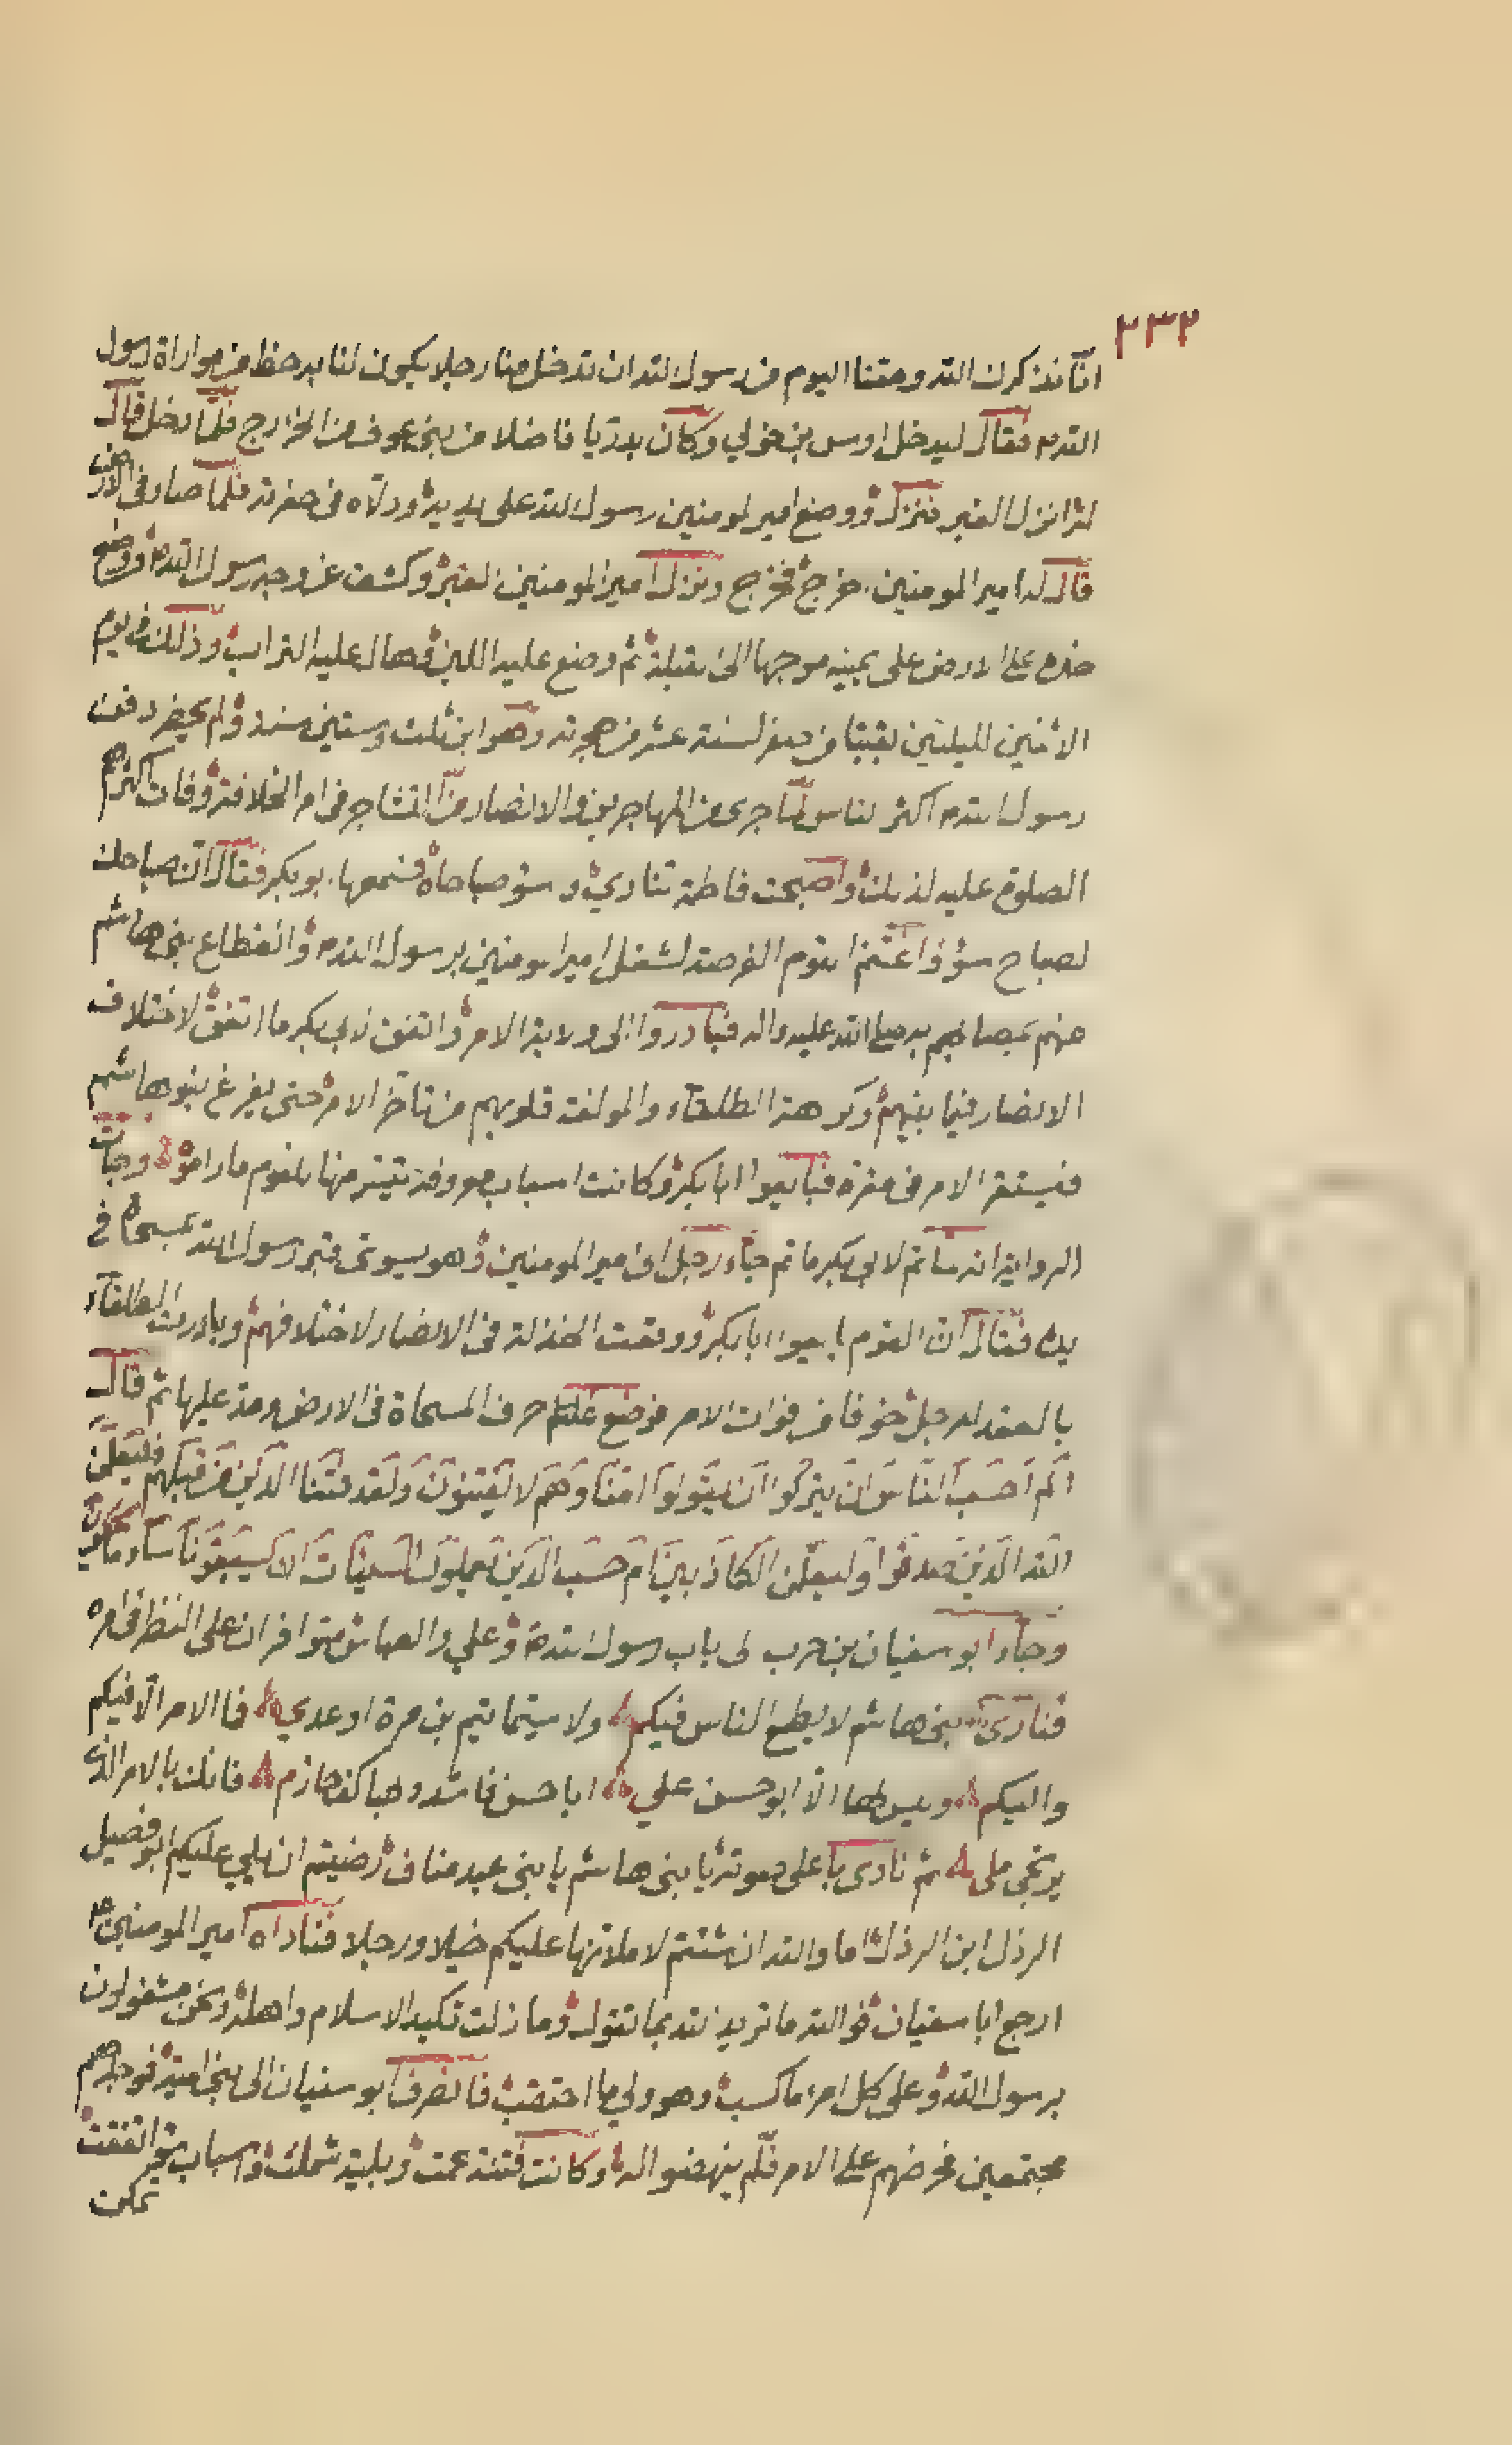 ٢٣٢
انا نذكرك الله وحقنا اليوم من رسول الله ان تدخل منا رجلا يكون لنا به حظ من مواراة رسول
الله م فقال ليدخل اوس بن خولي وكان بدريا فاضلا من بني عوف من الخزرج فلما دخل قال
له انزل القبر فنزل ووضع امير المومنين رسول الله على يديه ودلاه في حفرته فلما صار في الارض
قال له امير المومنين اخرج فخرج ونزل امير المومنين القبر وكشف عن وجه رسول الله م ووضع
خده على الارض على يمينه موجها الى القبلة ثم وضع عليه اللبن وهال عليه التراب وذلك في يوم
الاثنين لليلتين بقيتا من صفر لسنة عشر من هجرته وهو ابن ثلث وستين سنة ولم يحضر دفن
رسول الله م اكثر الناس لما جرى من المهاجرين والانصار من التشاجر في امر الخلافة وفات اكثرهم
الصلوة عليه لذلك واصبحت فاطمة تنادي وا سؤ صباحاه فسمعها ابو بكر فقال ان صباحك
لصباح سؤ واغتنم القوم الفرصة لشغل امير المومنين برسول الله م وانقطاع بني هاشم
عنهم بمصابهم به صلى الله عليه واله فبادروا الى ولاية الامر واتفق لابي بكر ما اتفق لاختلاف
الانصار فيما بينهم وكراهة الطلقاء والمولفة قلوبهم من تاخر الامر حتى يفرغ بنو هاشم
فيستقر الامر في مقره فبايعوا ابا بكر وكانت اسباب معروفة تيسر منها للقوم ما راموه وجاءت
الرواية انه لما تم لابي بكر ما تم جاء رجل الى امير المومنين وهو يسوى قبر رسول الله بمسحاة في
يده فقال ان القوم بايعوا ابا بكر ووقعت الخذلة في الانصار لاختلافهم وبادرت الطلقاء
بالعقد للرجل خوفا من فوات الامر فوضع علي م طرف المسحاة في الارض ويده عليها ثم قال
الم احسب الناس ان يتركوا ان يقولوا امنا وهم لا يفتنون ولقد فتنا الذين من قبلهم فليعلمن
الله الذين صدقوا وليعلمن الكاذبين ام حسب الذين يعملون السيئات ان يسبقونا ساء ما يحكمون
وجاء ابو سفيان بن حرب الى باب رسول الله م وعلي والعباس متوافران على النظر في امره
فنادى بني هاشم لا يطمع الناس فيكم ولا سيما تيم بن مرة او عدي فما الامر الا فيكم
واليكم وليس لها الا ابو حسن علي ابا حسن فاشدد بها كف حازم فانك بالامر الذي
يرتجى ملي ثم نادى باعلى صوته يا بني هاشم يا بني عبد مناف ارضيتم ان يلي عليكم ابو فضيل
الرذل ابن الرذل اما والله ان شئتم لاملانها عليكم خيلا ورجلا فناداه امير المومنين م
ارجع ابا سفيان فوالله ما تريد الله بما تقول وما زلت تكيد الاسلام واهله ونحن مشغولون
برسول الله وعلى كل امرء ما كسب وهو ولي ما احتقب فانصرف ابو سفيان الى بني امية فوجدهم
مجتمعين فحرضهم على الامر فلم ينهضوا اله وكانت فتنة عمت وبلية شملت واسباب سؤ اتفقت
تمكن